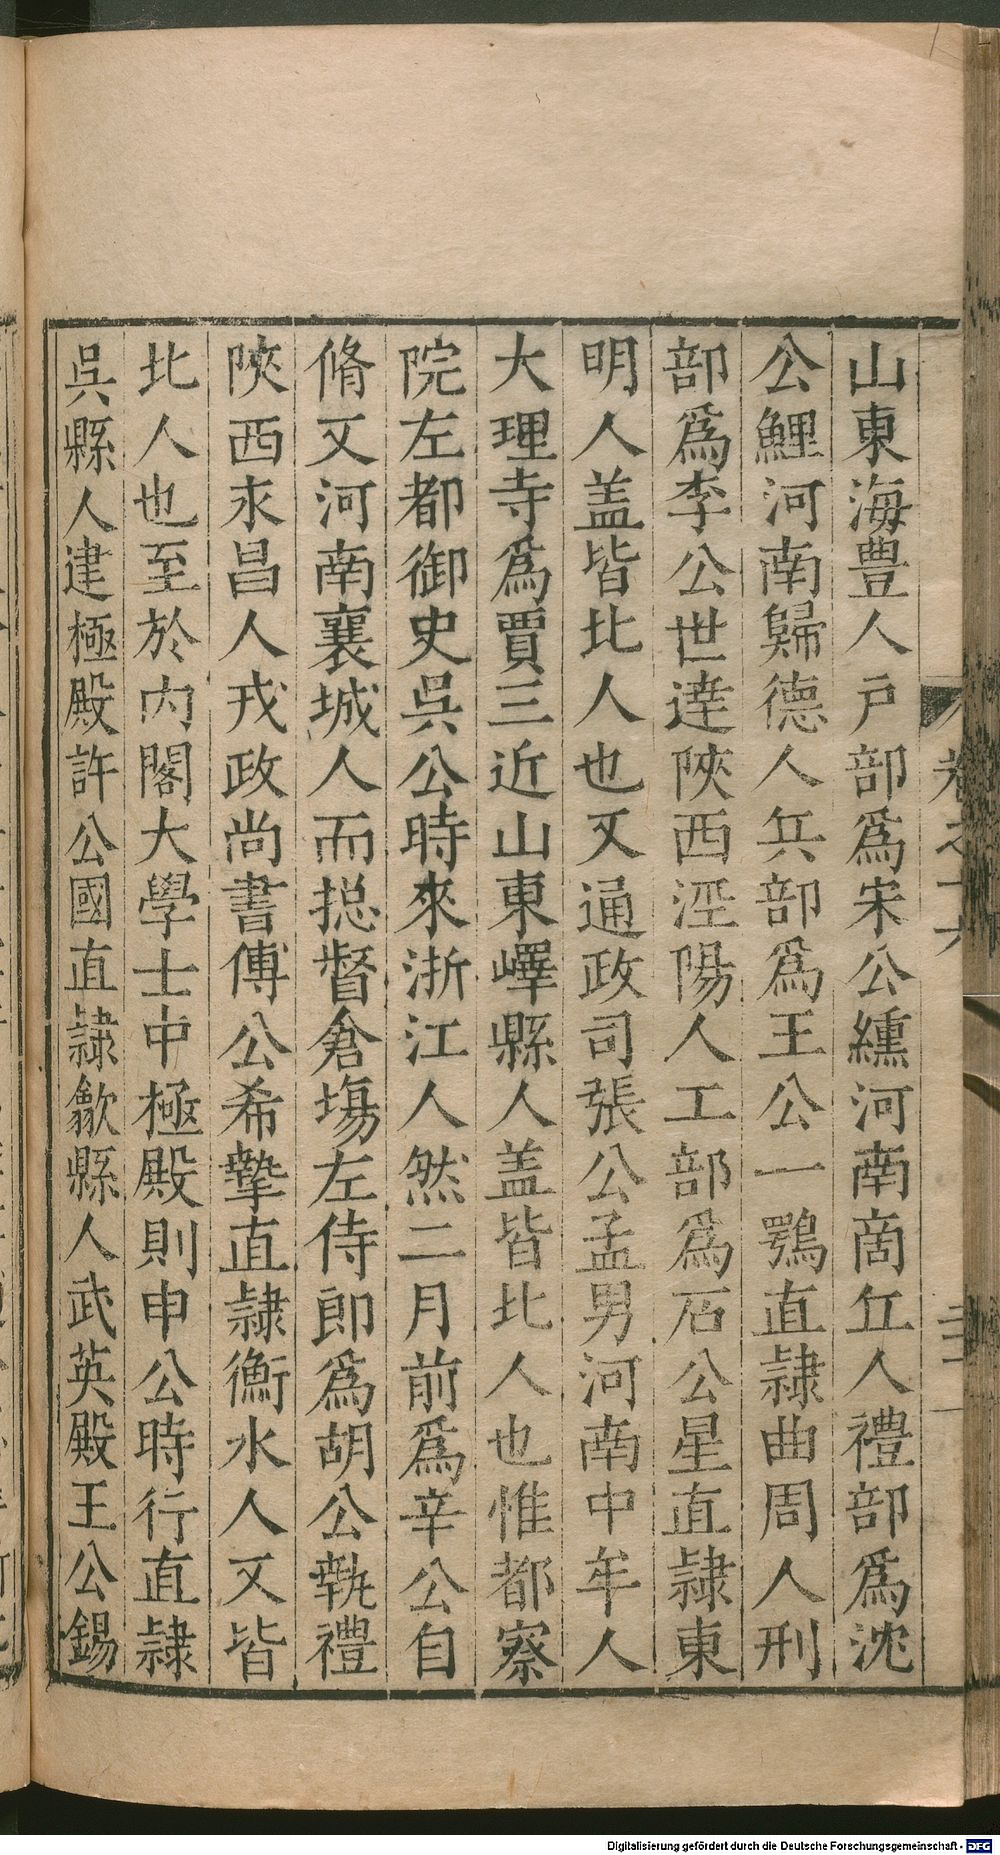 山東海豊人戸部爲宋公纁河南啇丘人禮部爲沈
公鯉河南歸德人兵部爲王公一鶚直隷曲周人刑
部爲李公世達陝西涇陽人工部爲石公星直隷東
明人盖皆北人也又通政司張公孟男河南中牟人
大理寺爲賈三近山東嶧縣人盖皆北人也惟都察
院左都御史吳公時來浙江人然二月前爲辛公自
脩又河南襄城人而捴督倉塲左侍郎爲胡公執禮
陝西永昌人戎政尚書傅公希摯直隷衡水人又皆
北人也至於内閣大學士中極殿則申公時行直隷
吳縣人建極殿許公國直隷歙縣人武英殿王公錫
Digitalisierung gefördert durch die Deutsche Forschungsgemeinschaft - DFG